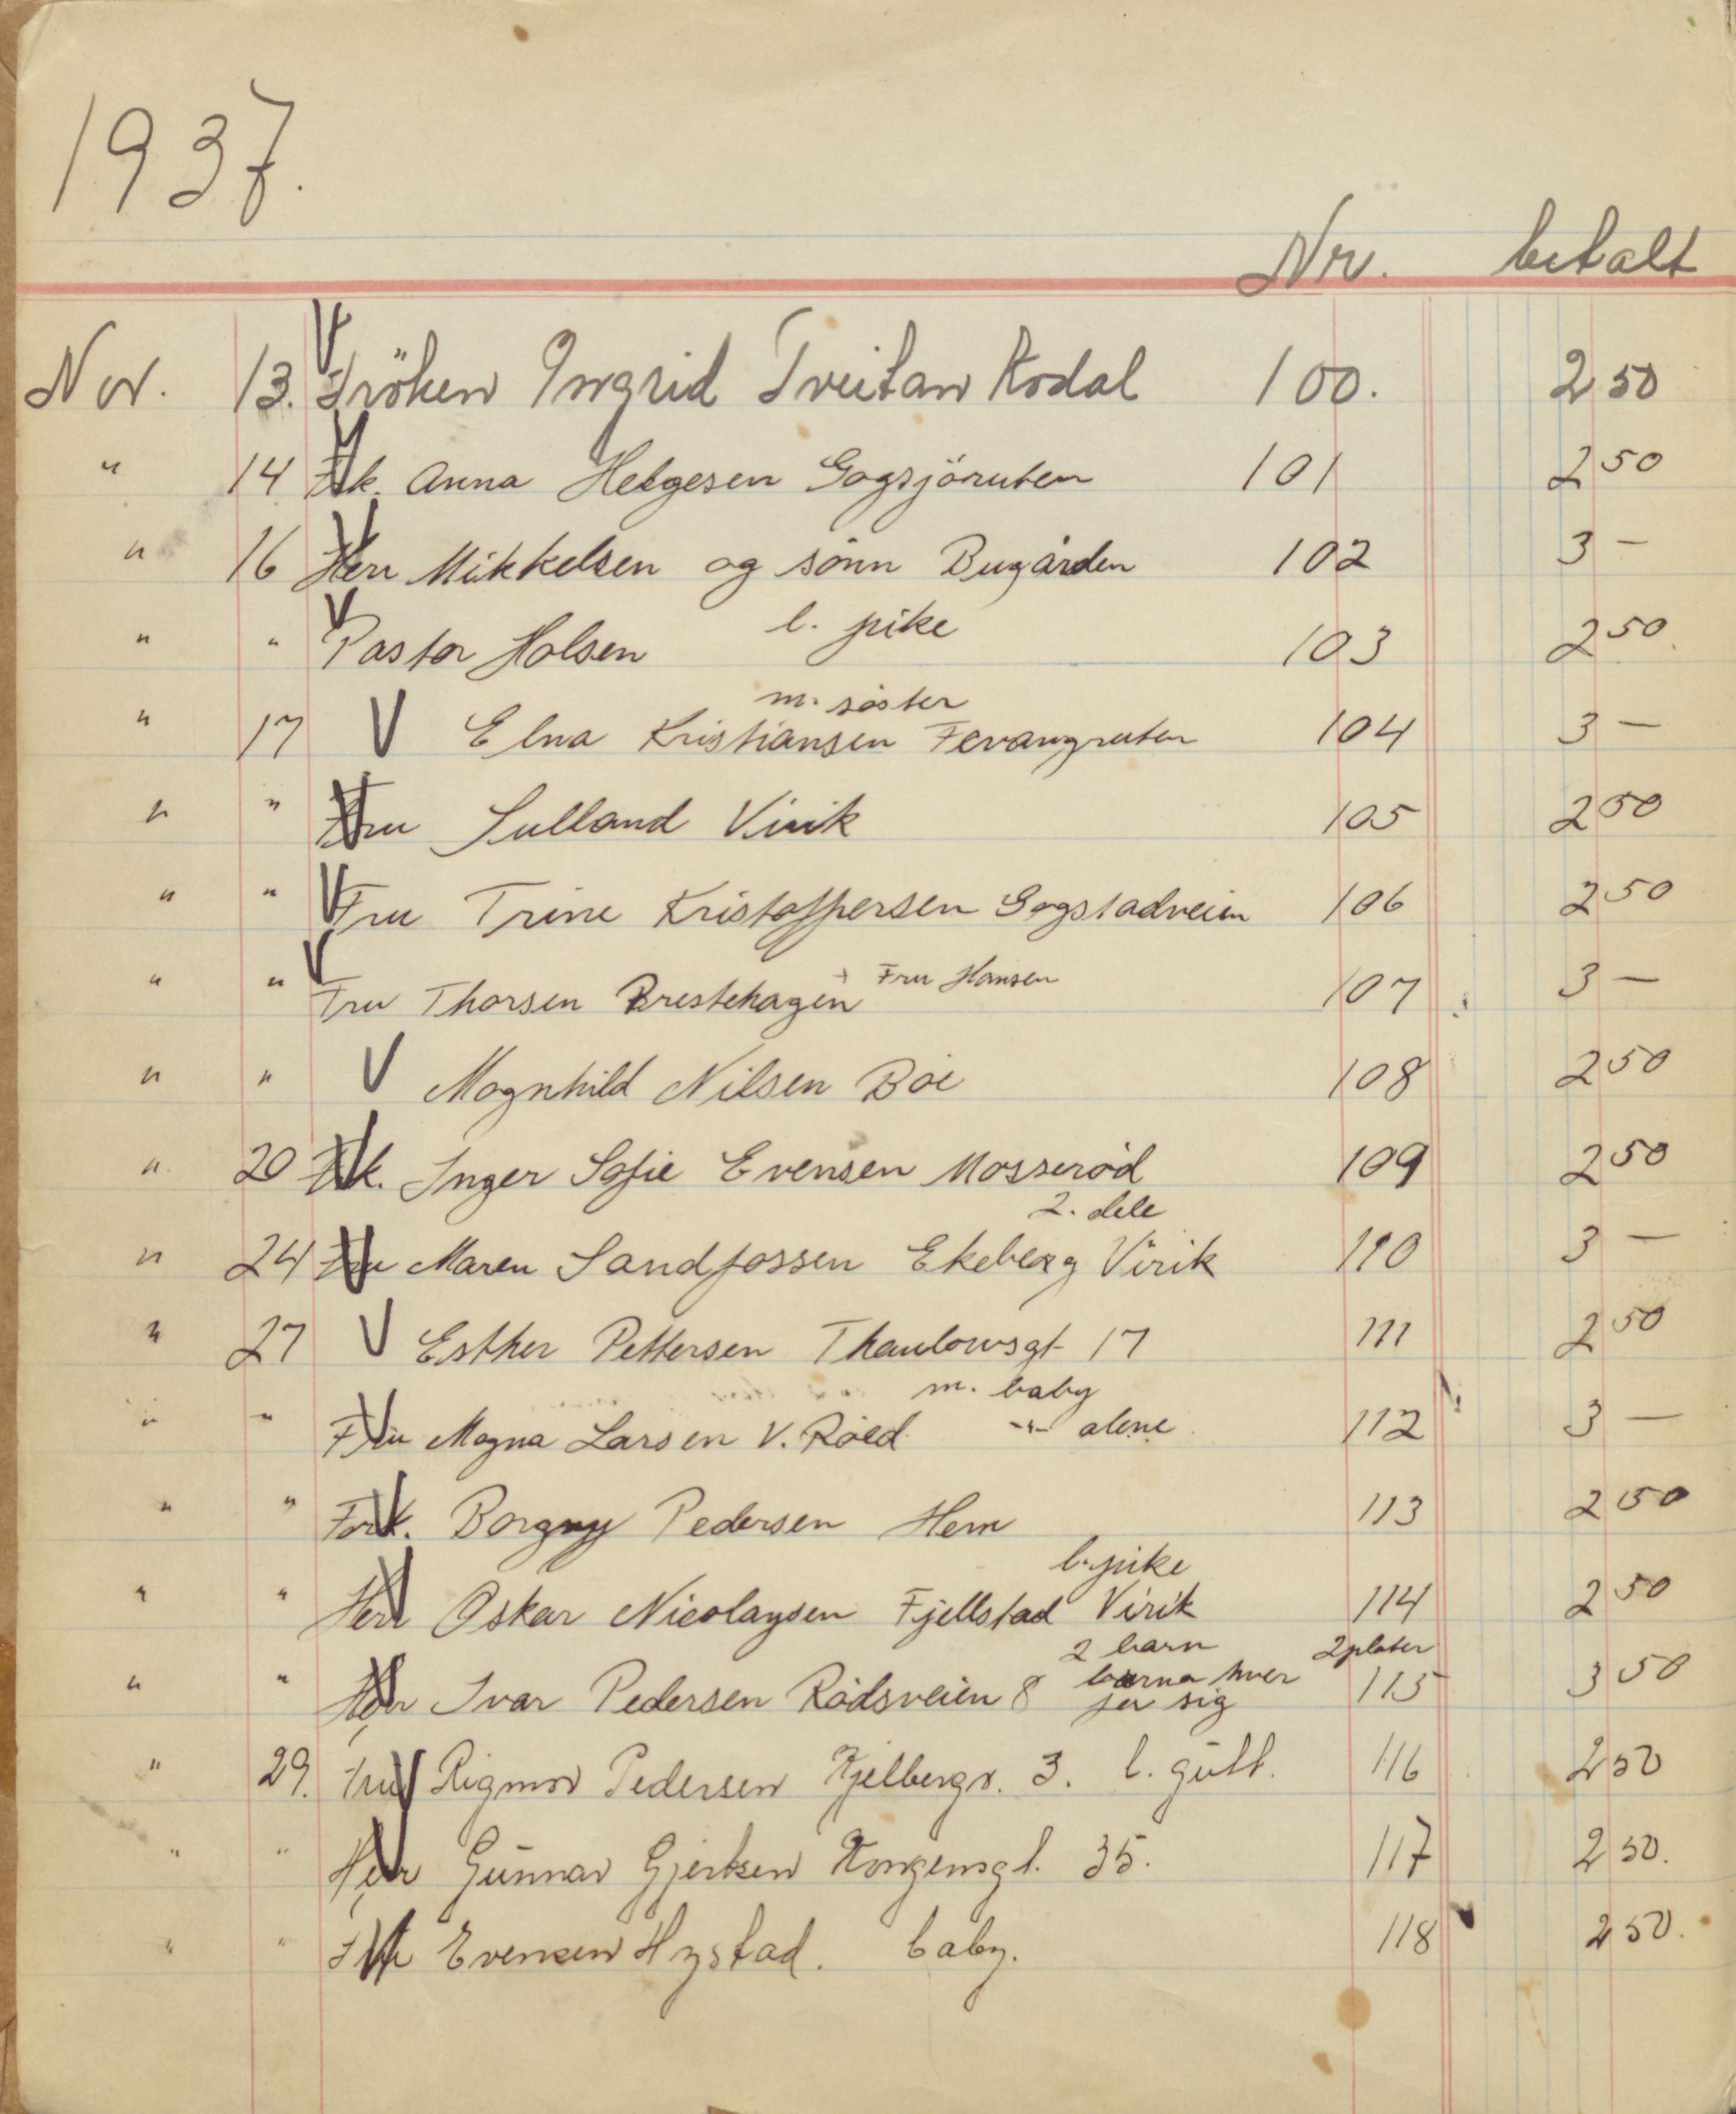 1937.
Nr. betalt
Nov. 13. V Fröken Ingrid Tveitan Kodal 100. 2 50
" 14 V Frk. Anna Helgesen Gogsjöruten 101 2 50
" 16 V Herr Mikkelsen og sönn Bugården 102 3 —
" " V Pastor Holsen l. pike 103 2 50
m. søster
" 17 V Elna Kristiansen Fevangruten 104 3 —
" " V Fru Sulland Virik 105 2 50
" " V Fru Trine Kristoffersen Gogstadveien 106 2 50
" " V Fru Thorsen Prestehagen + Fru Hansen 107 3 —
" " V Magnhild Nilsen Bøe 108 2 50
" 20 V Frk. Inger Sofie Evensen Mosserød 109 2 50
2. dele
" 24 V Fru Maren Sandfossen Ekeberg Virik 110 3 —
" 27 V Esther Pettersen Thaulowsgt 17 111 2 50
m. baby
" " V Fru Magna Larsen V. Røed -"- alene 112 3 —
" " V Frk. Borgny Pedersen Hem 113 2 50
l. pike
" " V Herr Oskar Nicolaysen Fjellstad Virik 114 2 50
2 barn 2 plater
" " V Herr Ivar Pedersen Rødsveien 8 barna hver for sig 115 3 50
" 29. V Fru Rigmor Pedersen Kjelbergv. 3. l. gutt. 116 2 50
" " V Herr Gunnar Gjertsen Kongensgt. 35. 117 2 50.
" " V Evensen Hystad. baby. 118 2 50.